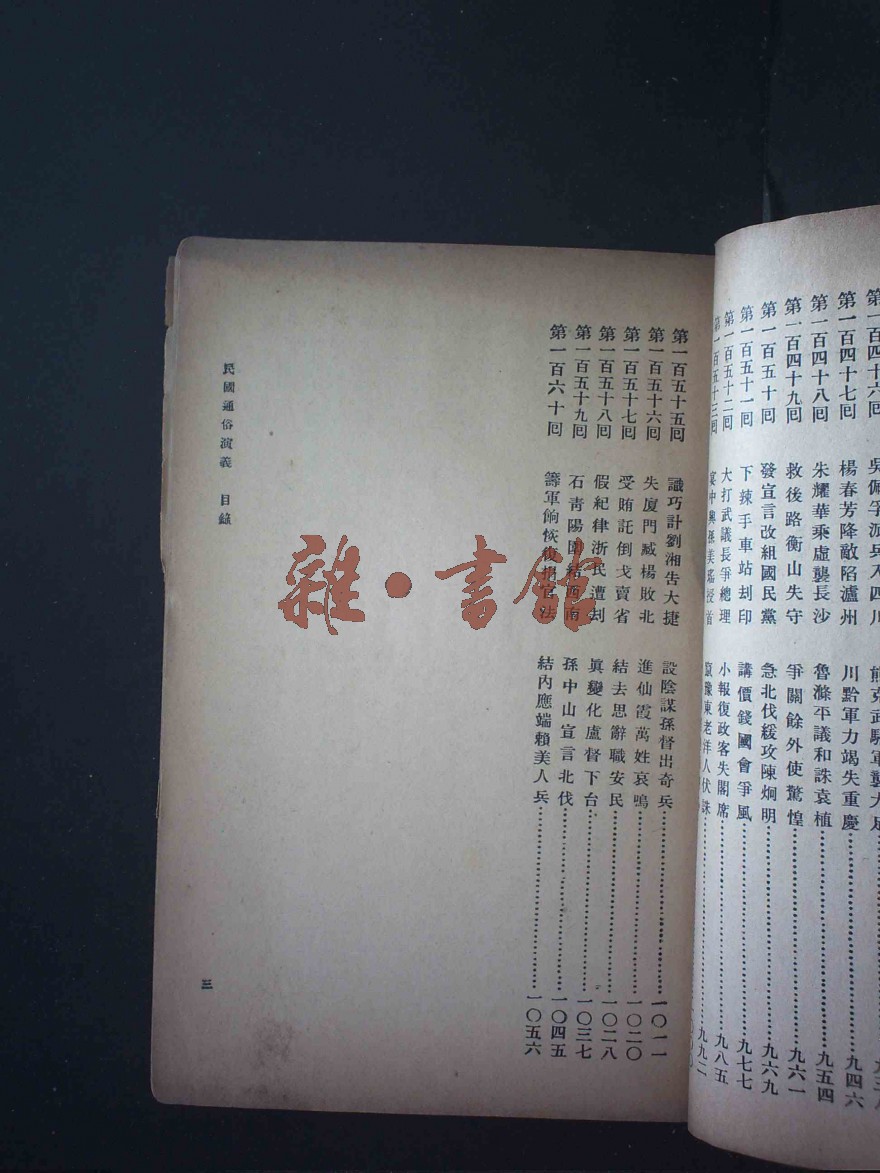 第一百四十六囘 吳佩孚派兵入四川
第一百四十七囘 楊春芳降敵陷瀘州 川黔軍力竭失重慶 九四六
第一百四十八囘 朱耀華乘虛襲長沙 魯滌平議和誅袁植 九五四
第一百四十九囘 救後路衡山失守 爭關餘外使驚惶 九六一
第一百五十囘 發宣言改組國民黨 急北伐緩攻陳炯明 九六九
第一百五十一囘 下辣手車站刦印 講價錢國會爭風 九七七
第一百五十二囘 大打武議長爭總理 小報復政客失閣席 九八五
第一百五十三囘 宴中興孫美瑤授首 窮豫東老洋人伏誅 九九二
第一百五十五囘 識巧計劉湘告大捷 設陰謀孫督出奇兵 一〇一一
第一百五十六囘 失廈門臧楊敗北 進仙霞萬姓哀鳴 一〇二〇
第一百五十七囘 受賄託倒戈賣省 結去思辭職安民 一〇二八
第一百五十八囘 假紀律浙民遭刦 眞變化盧督下台 一〇三七
第一百五十九囘 石青陽團結西南 孫中山宣言北伐 一〇四五
第一百六十囘 籌軍餉恢復捐官法 結內應端賴美人兵 一〇五六
民國通俗演義 目錄
三
雜·書館